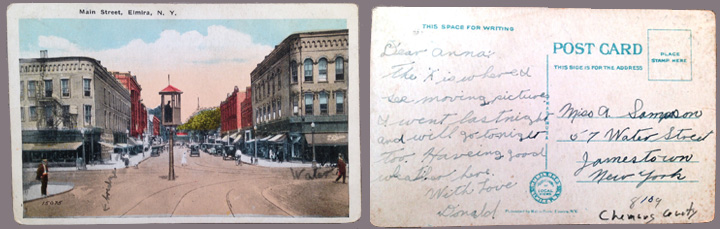 Main Street, Elmira, N. Y.
bridge
Water
THIS SPACE FOR WRITING
POST CARD
THIS SIDE IS FOR THE ADDRESS
PLACE
STAMP HERE
Dear Anna:
The X is where I
see moving pictures
I went last night
and will go tonight
too. Haveing good
weather here.
With Love
Donald
Miss A. Sampson
57 Water Street
Jamestown
New York
8109
Chemung County